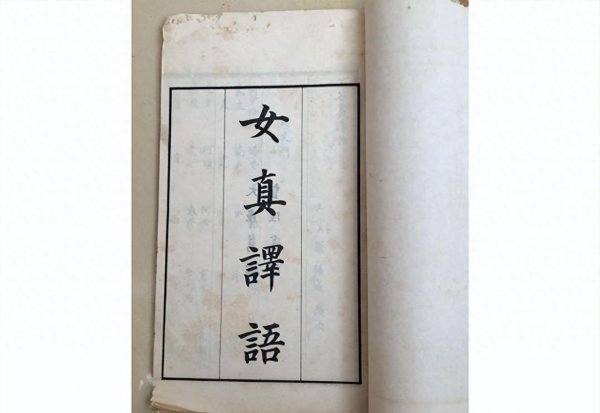 女真譯語